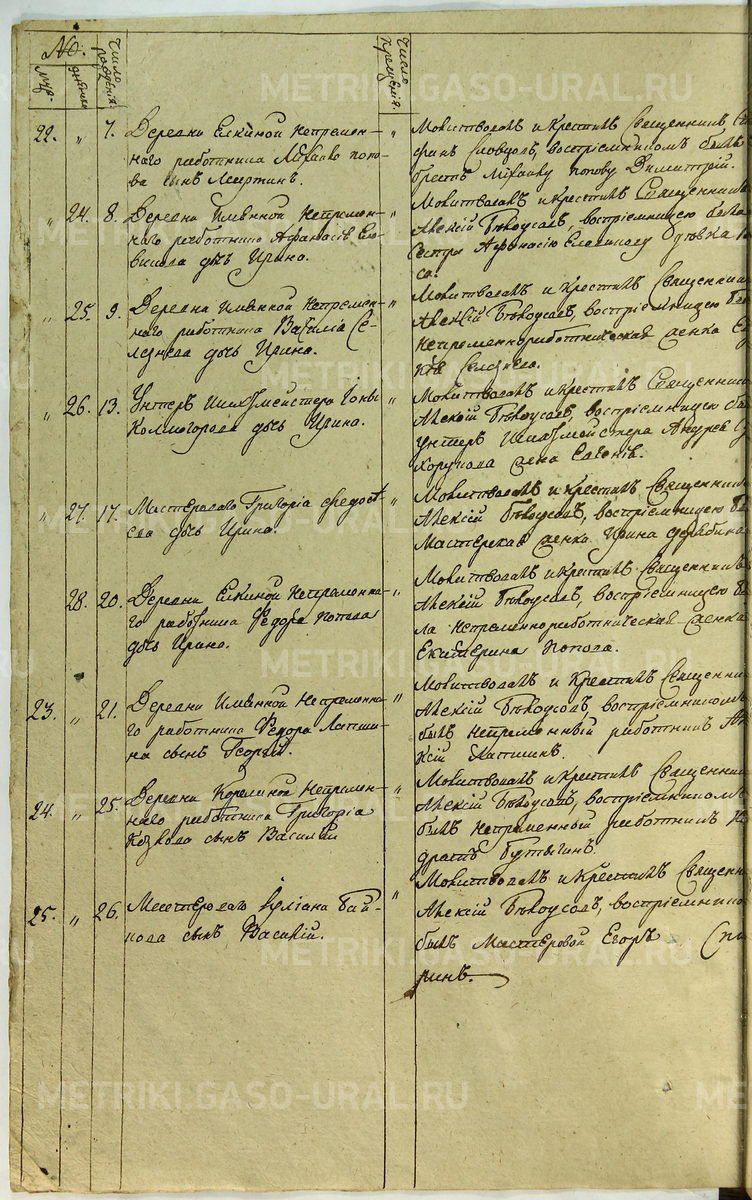 №.
муж.
женска
число рожденiя
число крещенiя.
22. „ 7. Деревни Елкиной Непремен-
наго работника Михаила Попо-
ва сынъ Мартинъ.
„ Молитвовалъ и крестилъ Священникъ
Словцовъ, воспрiемникомъ былъ
братъ Михаилу Попову Димитрiй.
„ 24. 8. Деревни Имянной Непремен-
наго работника Афанасiя
дочь Ирина.
„ Молитвовалъ и крестилъ Священникъ
Алексiй Бѣлоусовъ, воспрiемницею была
сестра Афанасiю
„ 25. 9. Деревни Имянной Непремен-
наго работника Василiя Се-
лезнева дочь Ирина.
„ Молитвовалъ и крестилъ Священникъ
Алексiй Бѣлоусовъ, воспрiемницею
Непременноработническая женка
Селезнева.
„ 26. 13. Унтеръ Шихтмейстера
Колмогорова дочь Ирина.
„ Молитвовалъ и крестилъ Священникъ
Алексiй Бѣлоусовъ, воспрiемницею
унтеръ Шихтмейстера Андрея
жена Евгенiя.
„ 27. 17. Мастероваго Григорiа Федосѣ-
ева дочь Ирина.
„ Молитвовалъ и крестилъ Священникъ
Алексiй Бѣлоусовъ, воспрiемницею
Мастерская женка Ирина
28. 20. Деревни Елкиной Непременна-
го работника Федора Попова
дочь Ирина.
„ Молитвовалъ и крестилъ Священникъ
Алексiй Бѣлоусовъ, воспрiемницею бы-
ла Непременноработническая женка
Екатерина Попова.
23. „ 21. Деревни Имянной Непременна-
го работника Федора Лапши-
на сынъ Георгiй.
„ Молитвовалъ и крестилъ
Алексiй Бѣлоусовъ, воспрiемникомъ
былъ непременный работникъ Але-
ксiй Лапшинъ.
24. „ 25. Деревни Непремен-
наго работника Григорiа
Козлова сынъ Василiй
„ Молитвовалъ и крестилъ
Алексiй Бѣлоусовъ, воспрiемникомъ
былъ непременный работникъ
Бутыгинъ.
25. „ 26. Мастероваго Iулiана Бай-
нова сынъ Василiй.
„ Молитвовалъ и крестилъ
Алексiй Бѣлоусовъ,
былъ Мастеровой Егоръ
ринъ.
METRIKI.GASO-URAL.RU